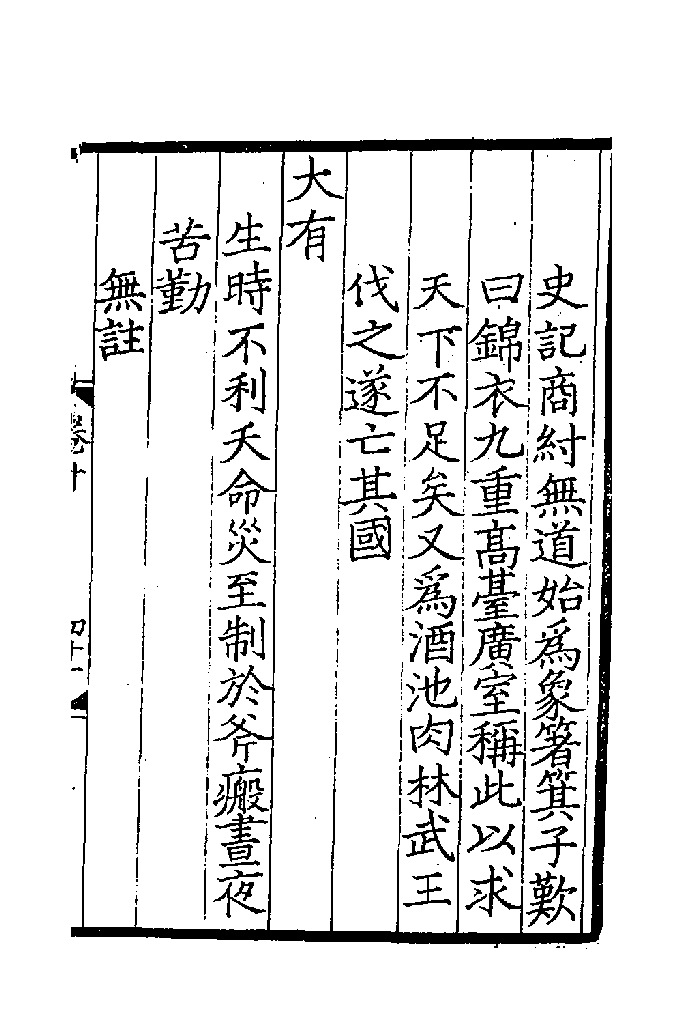 史記商紂無道始爲象箸箕子歎
曰錦衣九重高臺廣室稱此以求
天下不足矣又爲酒池肉林武王
伐之遂亡其國
大有
生時不利夭命災至制於斧瘢晝夜
苦勤
無註
卷十
四十一